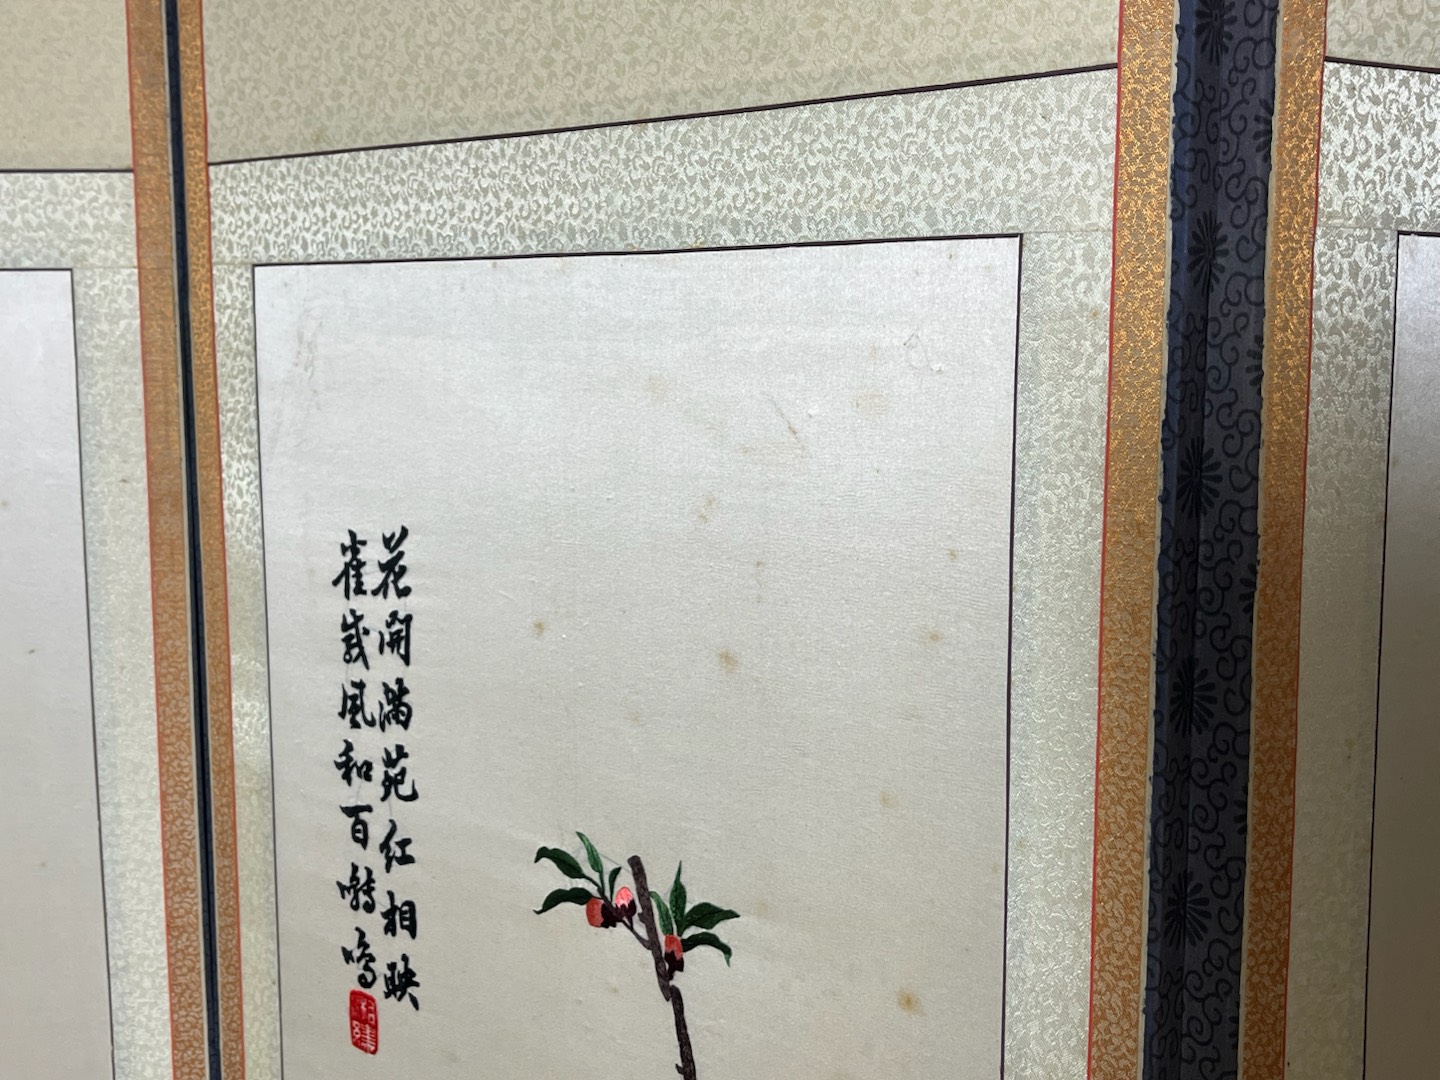 花開滿苑紅相映
雀歲風和百囀鳴